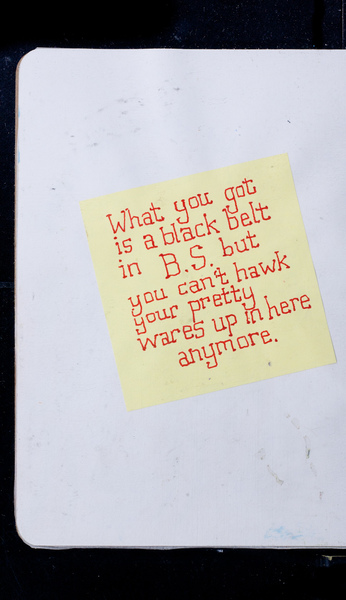 What you got
is a black belt
in B.S. but
you can't hawk
your pretty
wares up in here
anymore.